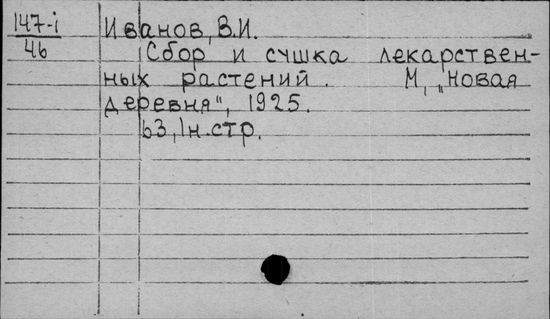 147-i
46
Иванов, В.И.
Сбор и сушка лекарствен-
ных растений. М, „Новая
деревня", 1925.
63, 1н.стр.